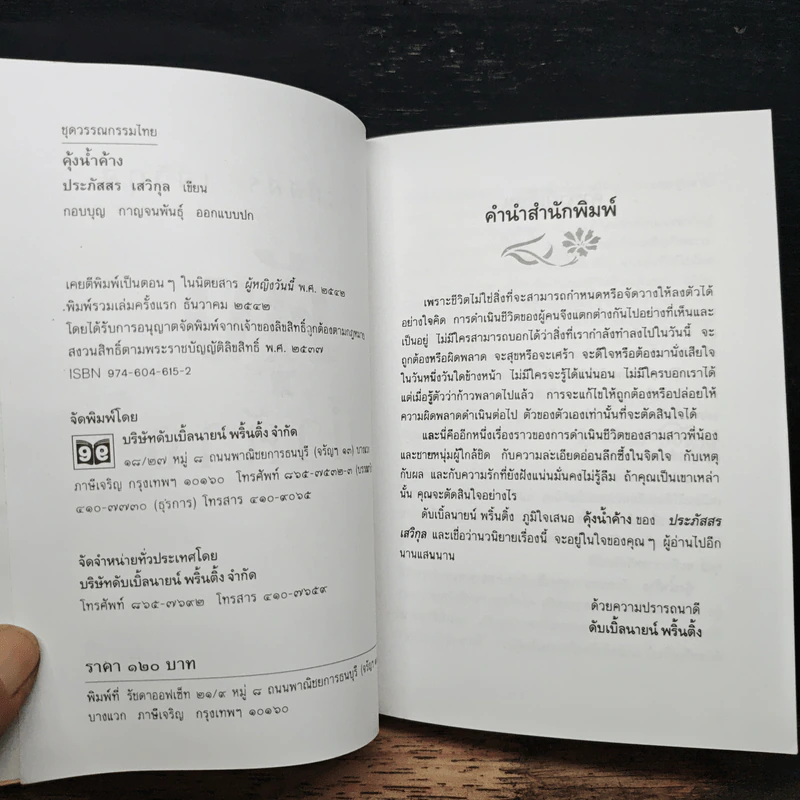 ชุดวรรณกรรมไทย
คุ้งน้ำค้าง
ประภัสสร เสวิกุล เขียน
กอบบุญ กาญจนพันธุ์ ออกแบบปก
เคยตีพิมพ์เป็นตอน ๆ ในนิตยสาร ผู้หญิงวันนี้ พ.ศ. ๒๕๔๒
พิมพ์รวมเล่มครั้งแรก ธันวาคม ๒๕๔๒
โดยได้รับการอนุญาตจัดพิมพ์จากเจ้าของลิขสิทธิ์ถูกต้องตามกฎหมาย
สงวนสิทธิ์ตามพระราชบัญญัติลิขสิทธิ์ พ.ศ. ๒๕๓๗
ISBN 974-604-615-2
จัดพิมพ์โดย
๑๑ บริษัทดับเบิ้ลนายน์ พริ้นติ้ง จำกัด
๑๘/๒๗ หมู่ ๘ ถนนพาณิชยการธนบุรี (จรัญฯ ๑๓)
ภาษีเจริญ กรุงเทพฯ ๑๐๑๖๐ โทรศัพท์ ๘๖๕-๗๕๓๒-๓
๔๑๐-๗๗๓๐ (ธุรการ) โทรสาร ๔๑๐-๙๐๖๕
จัดจำหน่ายทั่วประเทศโดย
บริษัทดับเบิ้ลนายน์ พริ้นติ้ง จำกัด
โทรศัพท์ ๘๖๕-๗๖๙๒ โทรสาร ๔๑๐-๗๖๕๙
ราคา ๑๒๐ บาท
พิมพ์ที่ รัชดาออฟเซ็ท ๒๑/๙ หมู่ ๘ ถนนพาณิชยการธนบุรี
บางแวก ภาษีเจริญ กรุงเทพฯ ๑๐๑๖๐
คำนำสำนักพิมพ์
เพราะชีวิตไม่ใช่สิ่งที่จะสามารถกำหนดหรือจัดวางให้ลงตัวได้
อย่างใจคิด การดำเนินชีวิตของผู้คนจึงแตกต่างกันไปอย่างที่เห็นและ
เป็นอยู่ ไม่มีใครสามารถบอกได้ว่าสิ่งที่เรากำลังทำลงไปในวันนี้ จะ
ถูกต้องหรือผิดพลาด จะสุขหรือจะเศร้า จะดีใจหรือต้องมานั่งเสียใจ
ในวันหนึ่งวันใดข้างหน้า ไม่มีใครจะรู้ได้แน่นอน ไม่มีใครบอกเราได้
แต่เมื่อรู้ตัวว่าก้าวพลาดไปแล้ว การจะแก้ไขให้ถูกต้องหรือปล่อยให้
ความผิดพลาดดำเนินต่อไป ตัวของตัวเองเท่านั้นที่จะตัดสินใจได้
และนี่คืออีกหนึ่งเรื่องราวของการดำเนินชีวิตของสามสาวพี่น้อง
และชายหนุ่มผู้ใกล้ชิด กับความละเอียดอ่อนลึกซึ้งในจิตใจ กับเหตุ
กับผล และกับความรักที่ยังฝังแน่นมั่นคงไม่รู้ลืม ถ้าคุณเป็นเขาเหล่า
นั้น คุณจะตัดสินใจอย่างไร
ดับเบิ้ลนายน์ พริ้นติ้ง ภูมิใจเสนอ คุ้งน้ำค้าง ของ ประภัสสร
เสวิกุล และเชื่อว่านวนิยายเรื่องนี้ จะอยู่ในใจของคุณ ๆ ผู้อ่านไปอีก
นานแสนนาน
ด้วยความปรารถนาดี
ดับเบิ้ลนายน์ พริ้นติ้ง